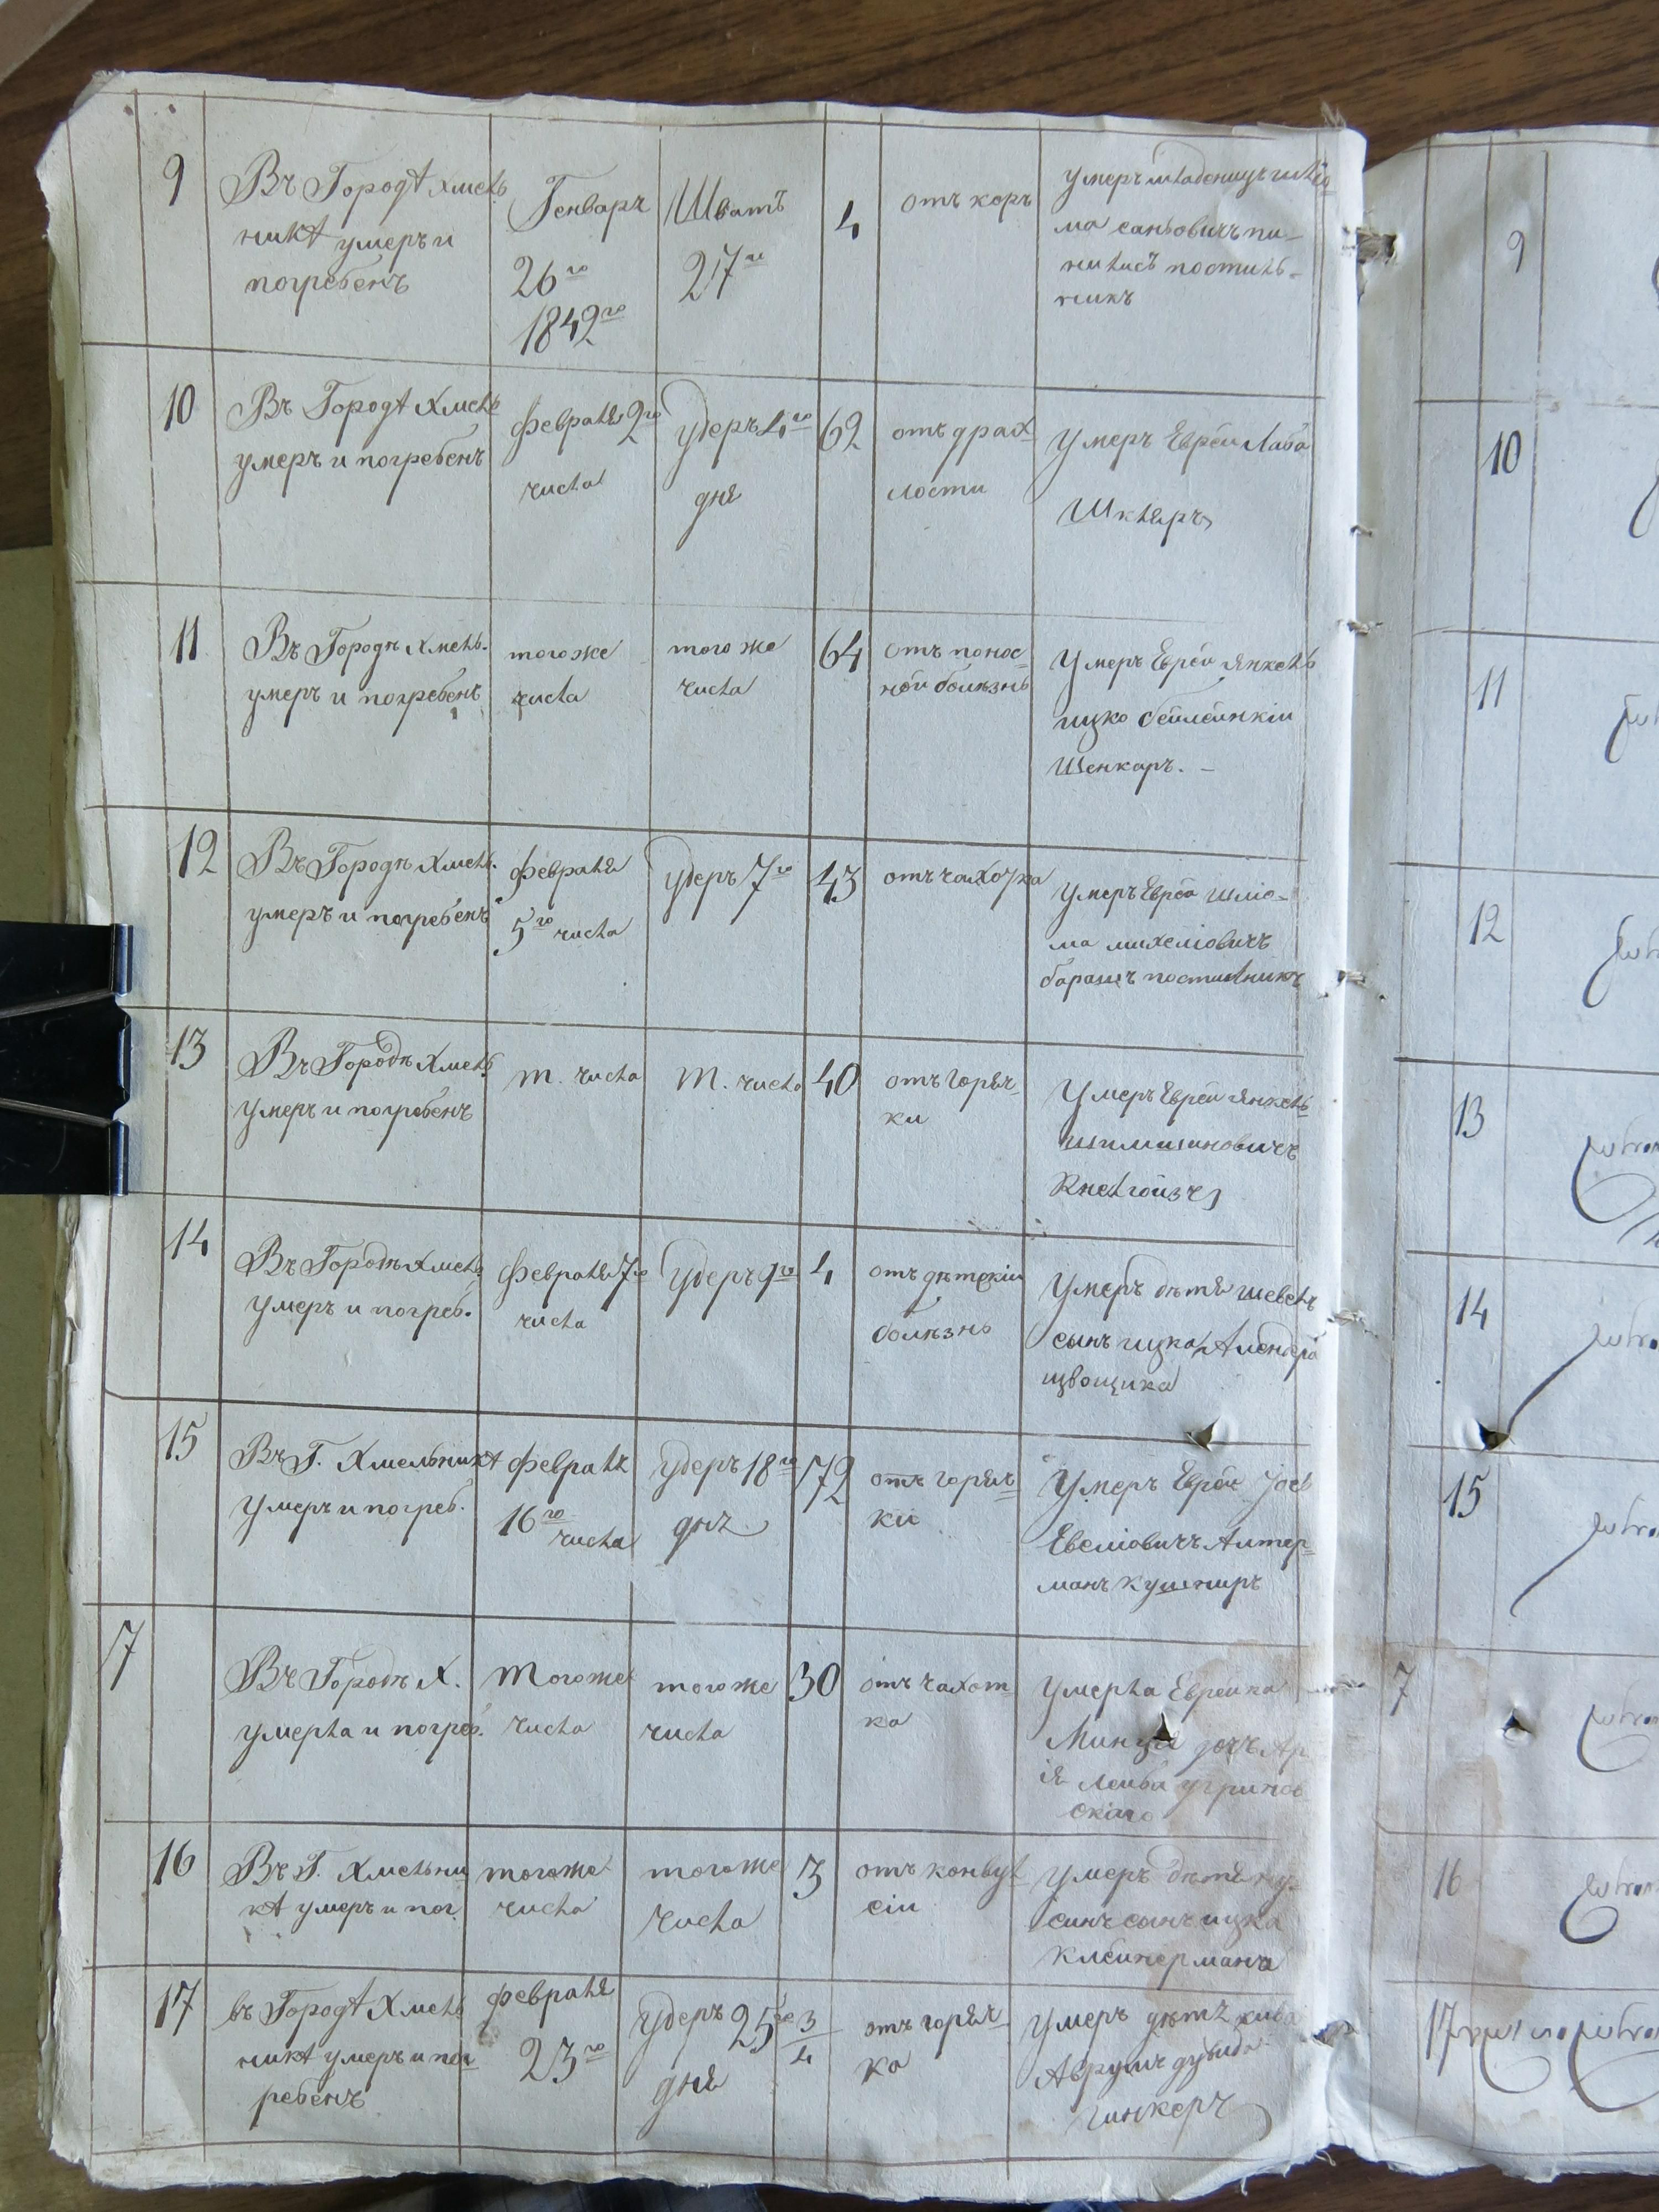 9
Въ Городѣ Хмель
никѣ умеръ и
погребенъ
Генваръ
26го
1842го
Шватъ
27го
4
отъ коръ
умеръ младенецъ шлио
ма
постиль-
никъ
10
Въ Городѣ Хмель
умеръ и погребенъ
февраля 2го
числа
удеръ 4го
дня
62
отъ драх
лости
Умеръ Еврей Лаба
Шкляръ
11
Въ Городѣ Хмель.
умеръ и погребенъ
тогоже
числа
того же
числа
64
отъ понос=
ной болѣзнь
Умеръ Еврей Янкель
ицко
Шенкаръ. -
12
Въ Городѣ Хмель.
умеръ и погребенъ
февраля
5го числа
удеръ 7го
43
отъ чахотка
Умеръ Еврей Шлио-
ма михелiовичъ
барашъ постильникъ
13
Въ Городѣ Хмель
умеръ и погребенъ
т. числа
т. числа
40
отъ горяч-
ки
Умеръ Еврей Янкель
14
Въ Городѣ Хмель
умеръ и погреб.
февраля 7го
числа
удеръ 9го
4
отъ дѣтскiи
болѣзнь
Умеръ дѣтя шевель
сынъ ицка
15
Въ Г. Хмельникѣ
умеръ и погреб.
февраль
16го числа
удеръ 18го
72
отъ горяч=
кѣ
Умеръ Еврей Iось
Евелiовичъ Алтер=
манъ кушниръ
7
Въ Городѣ Х.
умерла и погреб.
тогоже
числа
тогоже
числа
30
отъ чахот
ка
Умерла Еврейка
Минця дочъ Ар
iя Лейба угринов
скаго
16
Въ Г. Хмельни
кѣ умеръ и пог.
тогоже
числа
тогоже
числа
3
отъ конвул
сiи
Умеръ дѣтя ну
синъ сынъ ицка
Клейнермана
17
въ Городѣ Хмель
никѣ умеръ и пог
ребенъ
февраля
23го
удеръ 25го
дня
3/4
отъ горяч
ка
Умеръ дѣтя
Аврумъ дувида
гинкеръ
9
10
11
12
13
14
15
7
16
17